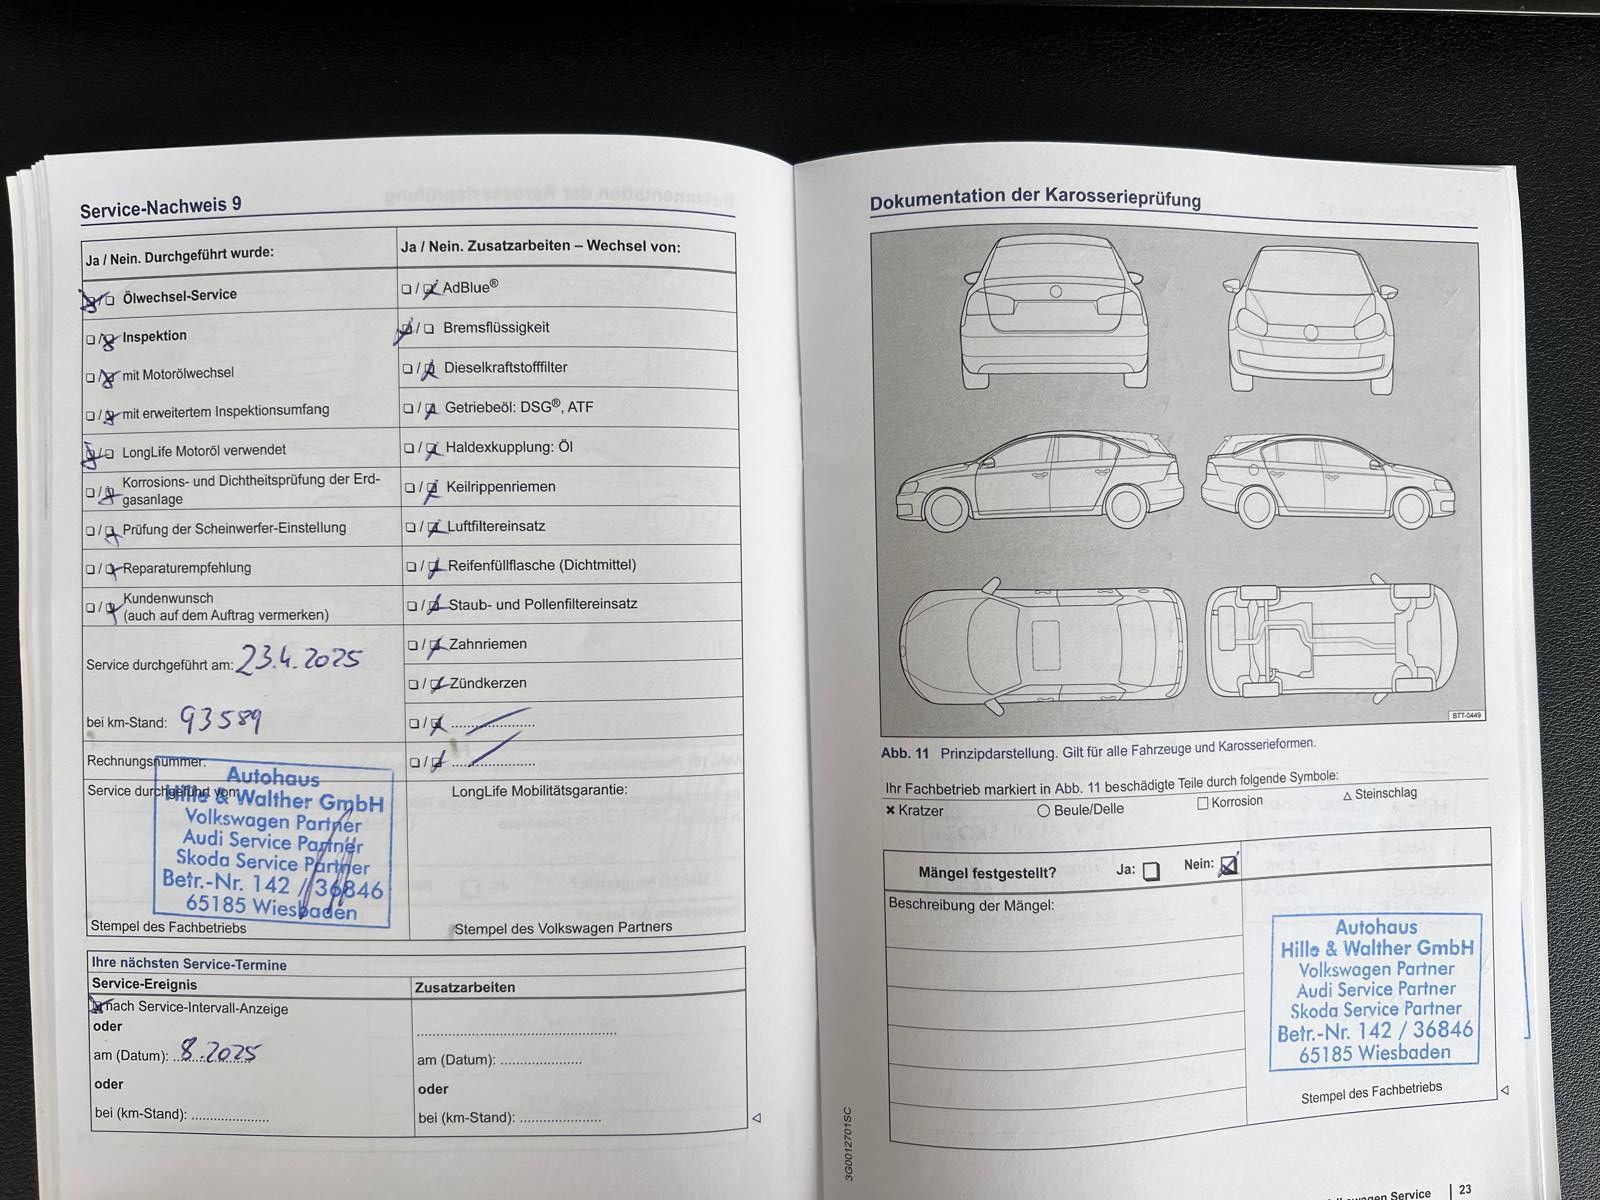 Service-Nachweis 9
Ja / Nein. Durchgeführt wurde:
Ölwechsel-Service
Inspektion
mit Motorölwechsel
mit erweitertem Inspektionsumfang
LongLife Motoröl verwendet
Korrosions- und Dichtheitsprüfung der Erd-
gasanlage
Prüfung der Scheinwerfer-Einstellung
Reparaturempfehlung
Kundenwunsch
(auch auf dem Auftrag vermerken)
Service durchgeführt am: 23.4.2025
bei km-Stand: 93589
Rechnungsnummer:
Service durchgeführt von:
Autohaus
Hille & Walther GmbH
Volkswagen Partner
Audi Service Partner
Skoda Service Partner
Betr.-Nr. 142 / 36846
65185 Wiesbaden
Stempel des Fachbetriebs
Ja / Nein. Zusatzarbeiten – Wechsel von:
AdBlue®
Bremsflüssigkeit
Dieselkraftstofffilter
Getriebeöl: DSG®, ATF
Haldexkupplung: Öl
Keilrippenriemen
Luftfiltereinsatz
Reifenfüllflasche (Dichtmittel)
Staub- und Pollenfiltereinsatz
Zahnriemen
Zündkerzen
LongLife Mobilitätsgarantie:
Stempel des Volkswagen Partners
Ihre nächsten Service-Termine
Service-Ereignis
nach Service-Intervall-Anzeige
oder
am (Datum): 8.2025
oder
bei (km-Stand):
Zusatzarbeiten
am (Datum):
oder
bei (km-Stand):
Dokumentation der Karosserieprüfung
BTT-0449
Abb. 11 Prinzipdarstellung. Gilt für alle Fahrzeuge und Karosserieformen.
Ihr Fachbetrieb markiert in Abb. 11 beschädigte Teile durch folgende Symbole:
× Kratzer ○ Beule/Delle □ Korrosion △ Steinschlag
Mängel festgestellt? Ja: Nein:
Beschreibung der Mängel:
Autohaus
Hille & Walther GmbH
Volkswagen Partner
Audi Service Partner
Skoda Service Partner
Betr.-Nr. 142 / 36846
65185 Wiesbaden
Stempel des Fachbetriebs
3G0012701SC
Service | 23